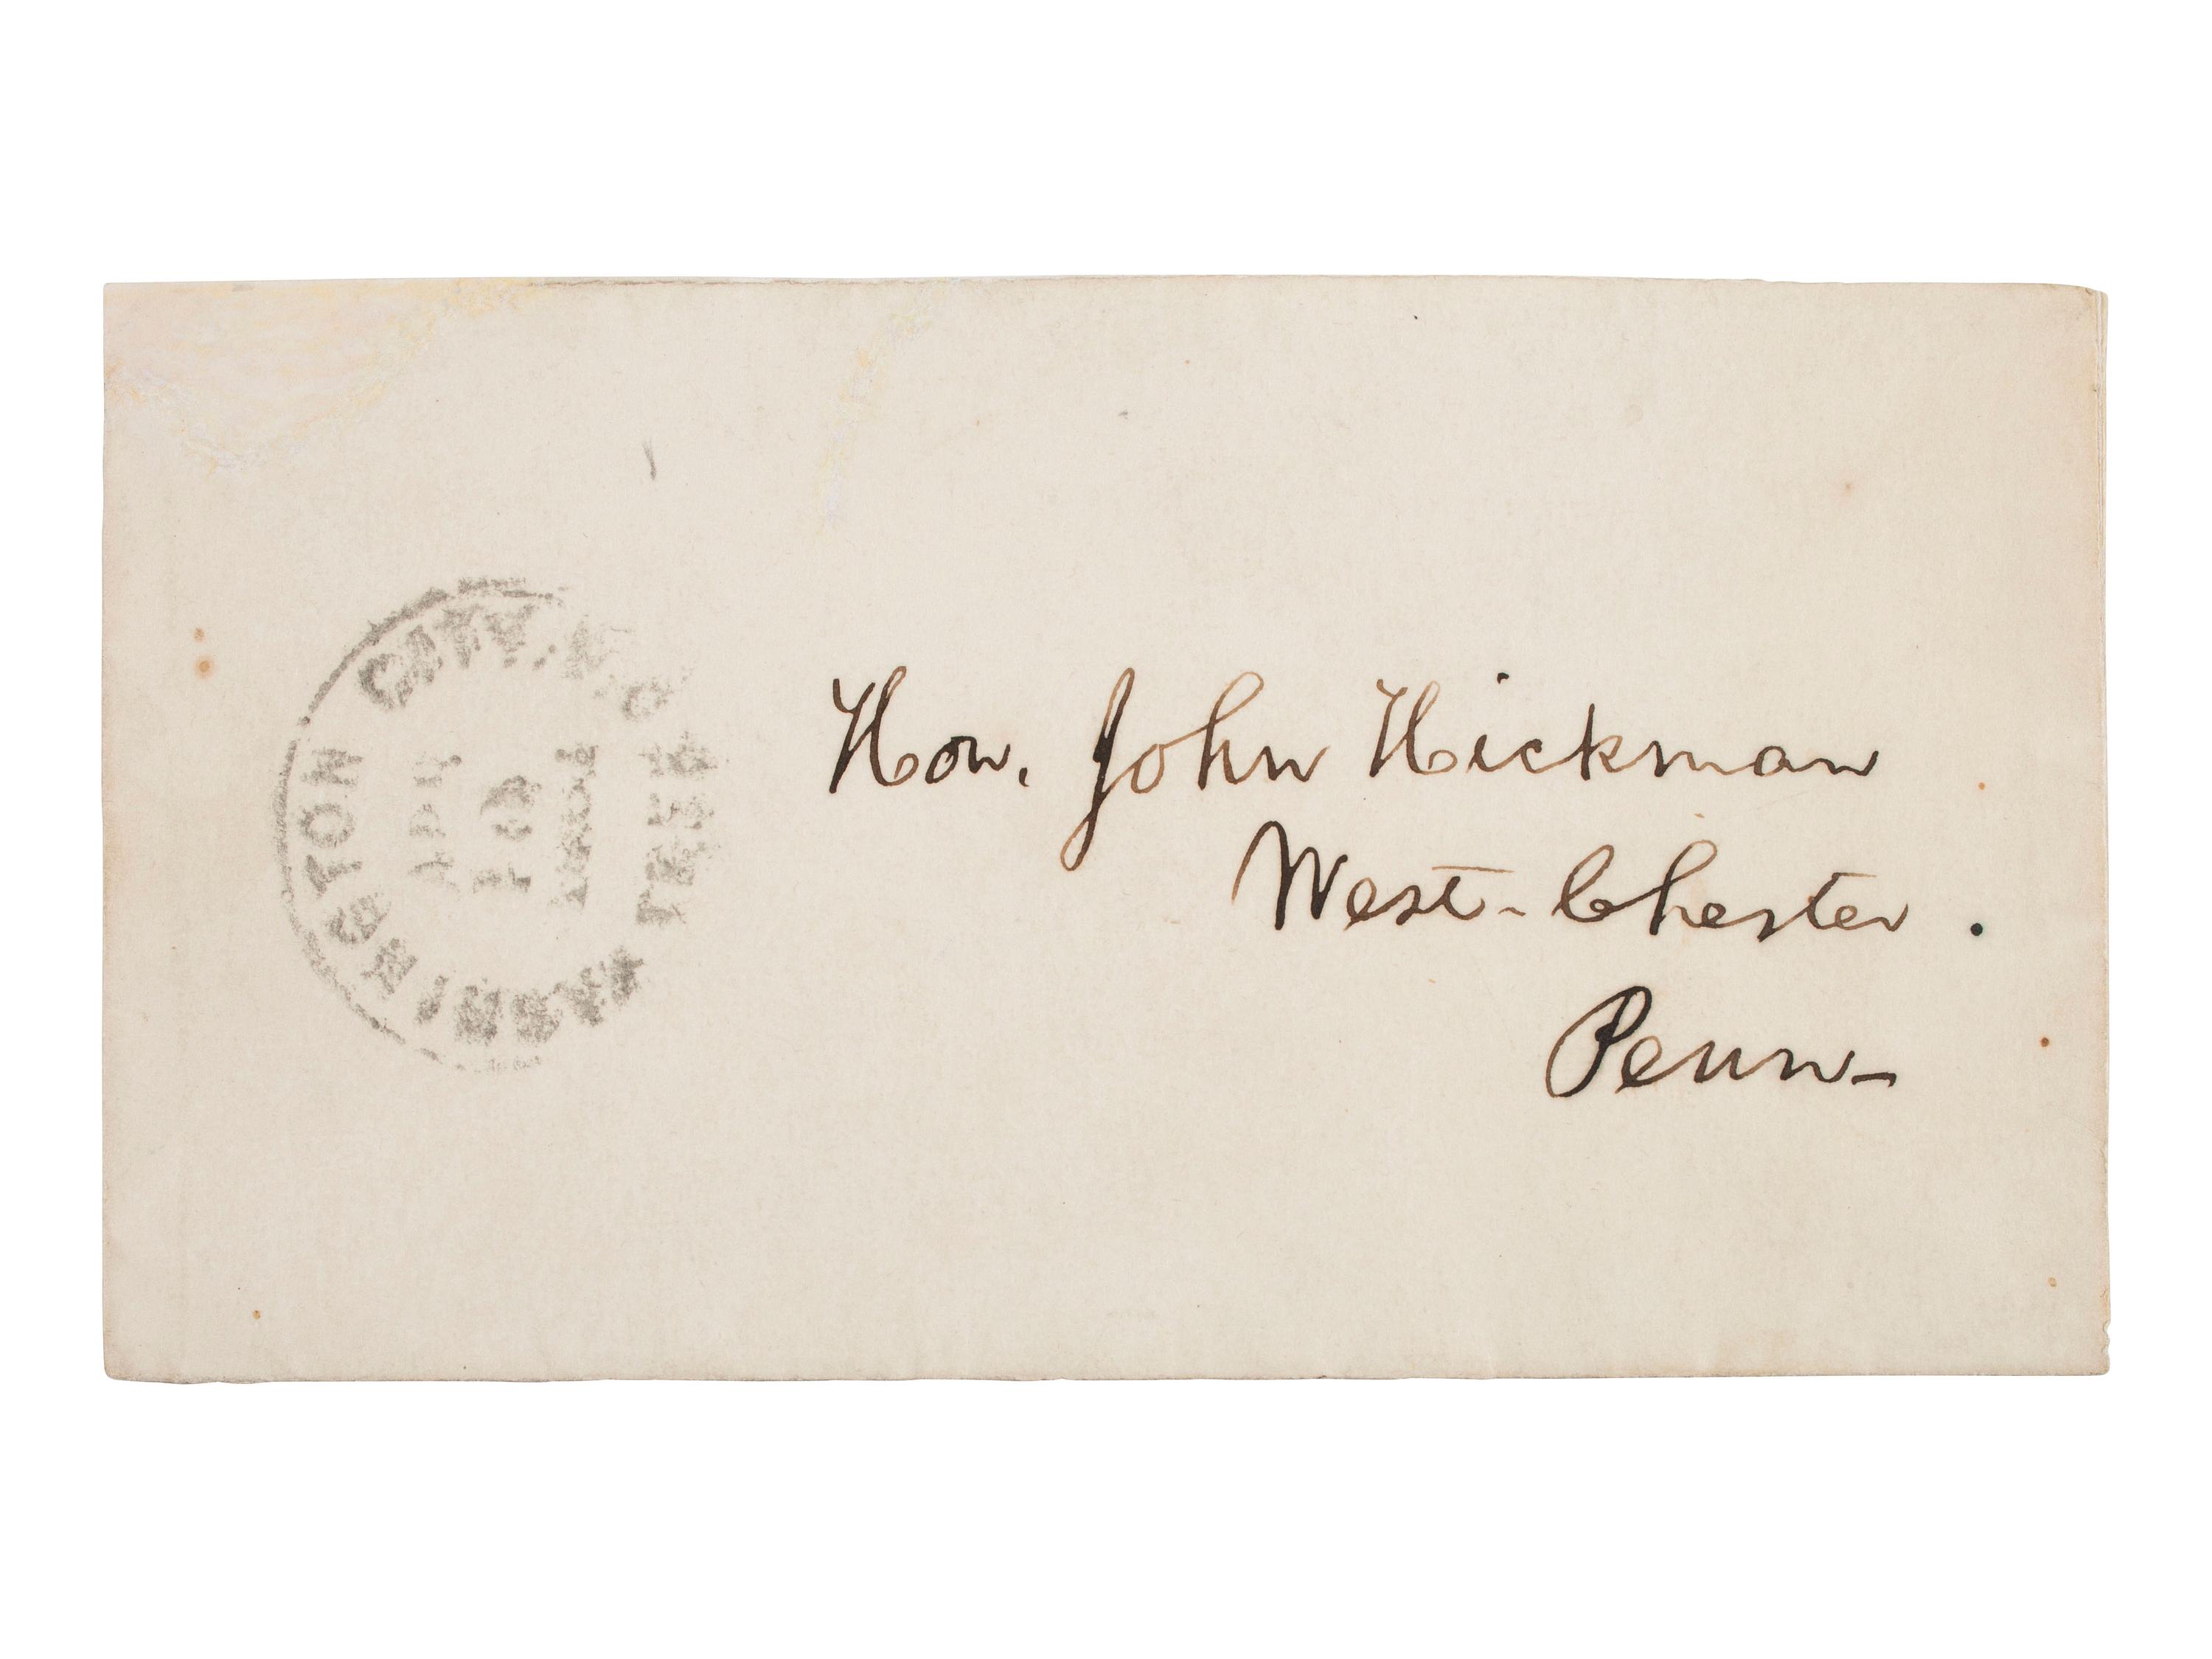 WASHINGTON CITY. D.C.
APR
FREE
Hon. John Hickman
West-Chester.
Penn-